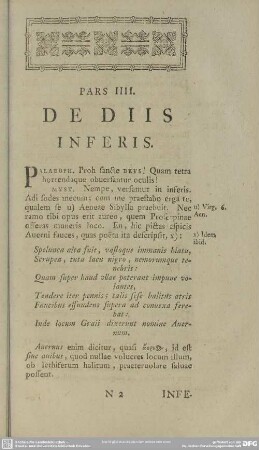 PARS IIII.
DE DIIS
INFERIS.
PALAEOPH. Proh sancte DEVS! Quam tetra
horrendaque obuersantur oculis!
MVST. Nempe, versamur in inferis.
Adi sodes mecum: eum me praestabo erga te,
qualem se u) Aeneae Sibylla praebuit. Nec
ramo tibi opus erit aureo, quem Proserpinae
offeras muneris loco. En, hic piger aspicis
Auerni fauces, quas poëta ita descripsit, x):
u) Virg. 6.
Aen.
x) Idem
ibid.
Spelunca alta fuit, vastoque immanis hiatu,
Scrupea, tuta lacu nigro, nemorumque te-
nebris:
Quam super haud ullae poterant impune vo-
lantes,
Tendere iter pennis; talis sese halitus atris
Faucibus effundens supera ad conuexa fere-
bat:
Inde locum Graii dixerunt nomine Auer-
num.
Auernus enim dicitur, quasi id est
sine auibus, quod nullae volucres locum illum,
ob lethiferum halitum, praeteruolare saluae
possent.
N 2
INFE-